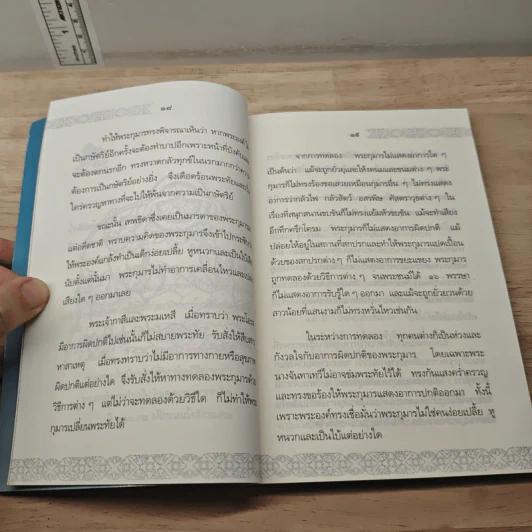 ๑๘
ทำให้พระกุมารทรงพิจารณาเห็นว่า หากพระองค์
เป็นกษัตริย์อีกครั้งจะต้องทำบาปอีกเพราะหน้าที่บังคับและ
จะต้องตกนรกอีก ทรงหวาดกลัวทุกข์ในนรกมากกว่าความ
ต้องการเป็นกษัตริย์อย่างยิ่ง จึงเดือดร้อนพระทัยและใน
ใคร่ครวญหาทางที่จะไปให้พ้นจากความเป็นกษัตริย์
ขณะนั้น เทพธิดาซึ่งเคยเป็นมารดาของพระกุมาร
แต่อดีตชาติ ทราบความคิดของพระกุมารจึงเข้าไปกระซิบ
ให้พระองค์แกล้งทำเป็นเด็กง่อยเปลี้ย หูหนวกและเป็นใบ้
นับตั้งแต่นั้นมา พระกุมารไม่ทำอาการเคลื่อนไหวและเปล่ง
เสียงใด ๆ ออกมาเลย
พระเจ้ากาสีและพระมเหสี เมื่อทราบว่า พระโอรส
มีอาการผิดปกติไปเช่นนั้นก็ไม่สบายพระทัย รับสั่งให้สืบ
หาสาเหตุ เมื่อทรงทราบว่าไม่มีอาการทางกายหรือสุขภาพ
ผิดปกติแต่อย่างใด จึงรับสั่งให้หาทางทดลองพระกุมารด้วย
วิธีการต่าง ๆ แต่ไม่ว่าจะทดลองด้วยวิธีใด ก็ไม่ทำให้พระ
กุมารเปลี่ยนพระทัยได้
๑๙
จากการทดลอง พระกุมารไม่แสดงอาการใด ๆ
เป็นต้นว่า แม้จะถูกยั่วยุและให้งดนมและขนมต่าง ๆ พระ
กุมารก็ไม่ทรงร้องขอสวยเหมือนกุมารอื่น ๆ ไม่ทรงแสดง
อาการว่ากลัวไฟ กลัวสัตว์ อสรพิษ ศัสตราวุธต่าง ๆ ใน
เรื่องที่สนุกสนานขบขันก็ไม่ทรงแย้มหัวขบขัน แม้จะทำเสียง
อึกทึกครึกโครม พระกุมารก็ไม่แสดงอาการผิดปกติ แม้
ปล่อยให้อยู่ในสถานที่สกปรกและทำให้พระกุมารแปดเปื้อน
ด้วยของสกปรกต่าง ๆ ก็ไม่แสดงอาการขยะแขยง พระกุมาร
ถูกทดลองด้วยวิธีการต่าง ๆ จนพระชนม์ได้ ๑๖ พรรษา
ก็ไม่แสดงการรับรู้ใด ๆ ออกมา และแม้จะถูกยั่วยวนด้วย
สาวน้อยที่แสนงามก็ไม่ทรงหวั่นไหวเช่นกัน
ในระหว่างการทดลอง ทุกคนต่างก็เป็นห่วงและ
กังวลใจกับอาการผิดปกติของพระกุมาร โดยเฉพาะพระ
นางจันทาเทวีไม่อาจข่มพระทัยไว้ได้ ทรงกันแสงคร่ำครวญ
และทรงขอร้องให้พระกุมารแสดงอาการปกติออกมา ทั้งนี้
เพราะพระองค์ทรงเชื่อมั่นว่าพระกุมารไม่ใช่คนง่อยเปลี้ย หู
หนวกและเป็นใบ้แต่อย่างใด